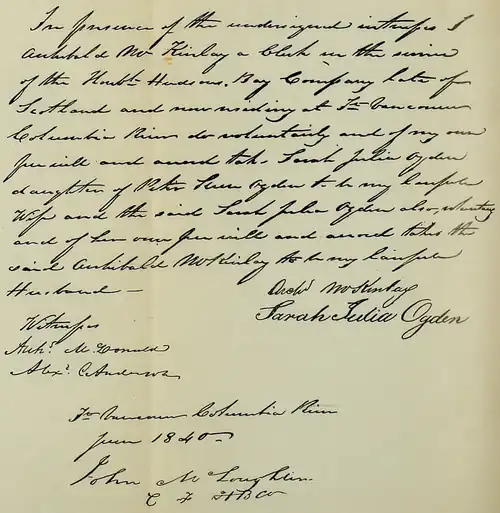 In presence of the undersigned witnesses I
Archibald McKinlay a Clerk in the service
of the Honble Hudsons Bay Company late of
Scotland and now residing at Ft Vancouver
Columbia River do voluntarily and of my own
free will and accord take Sarah Julia Ogden
daughter of Peter Skeen Ogden to be my lawful
Wife and the said Sarah Julia Ogden also, voluntary
and of her own free will and accord takes the
said Archibald McKinlay to be my lawful
Husband —
Archd McKinlay
Sarah Julia Ogden
Witness
Archd. McDonald
Alexr. C Anderson
Ft Vancouver Columbia River
June 1840
John McLoughlin
C F HBCo